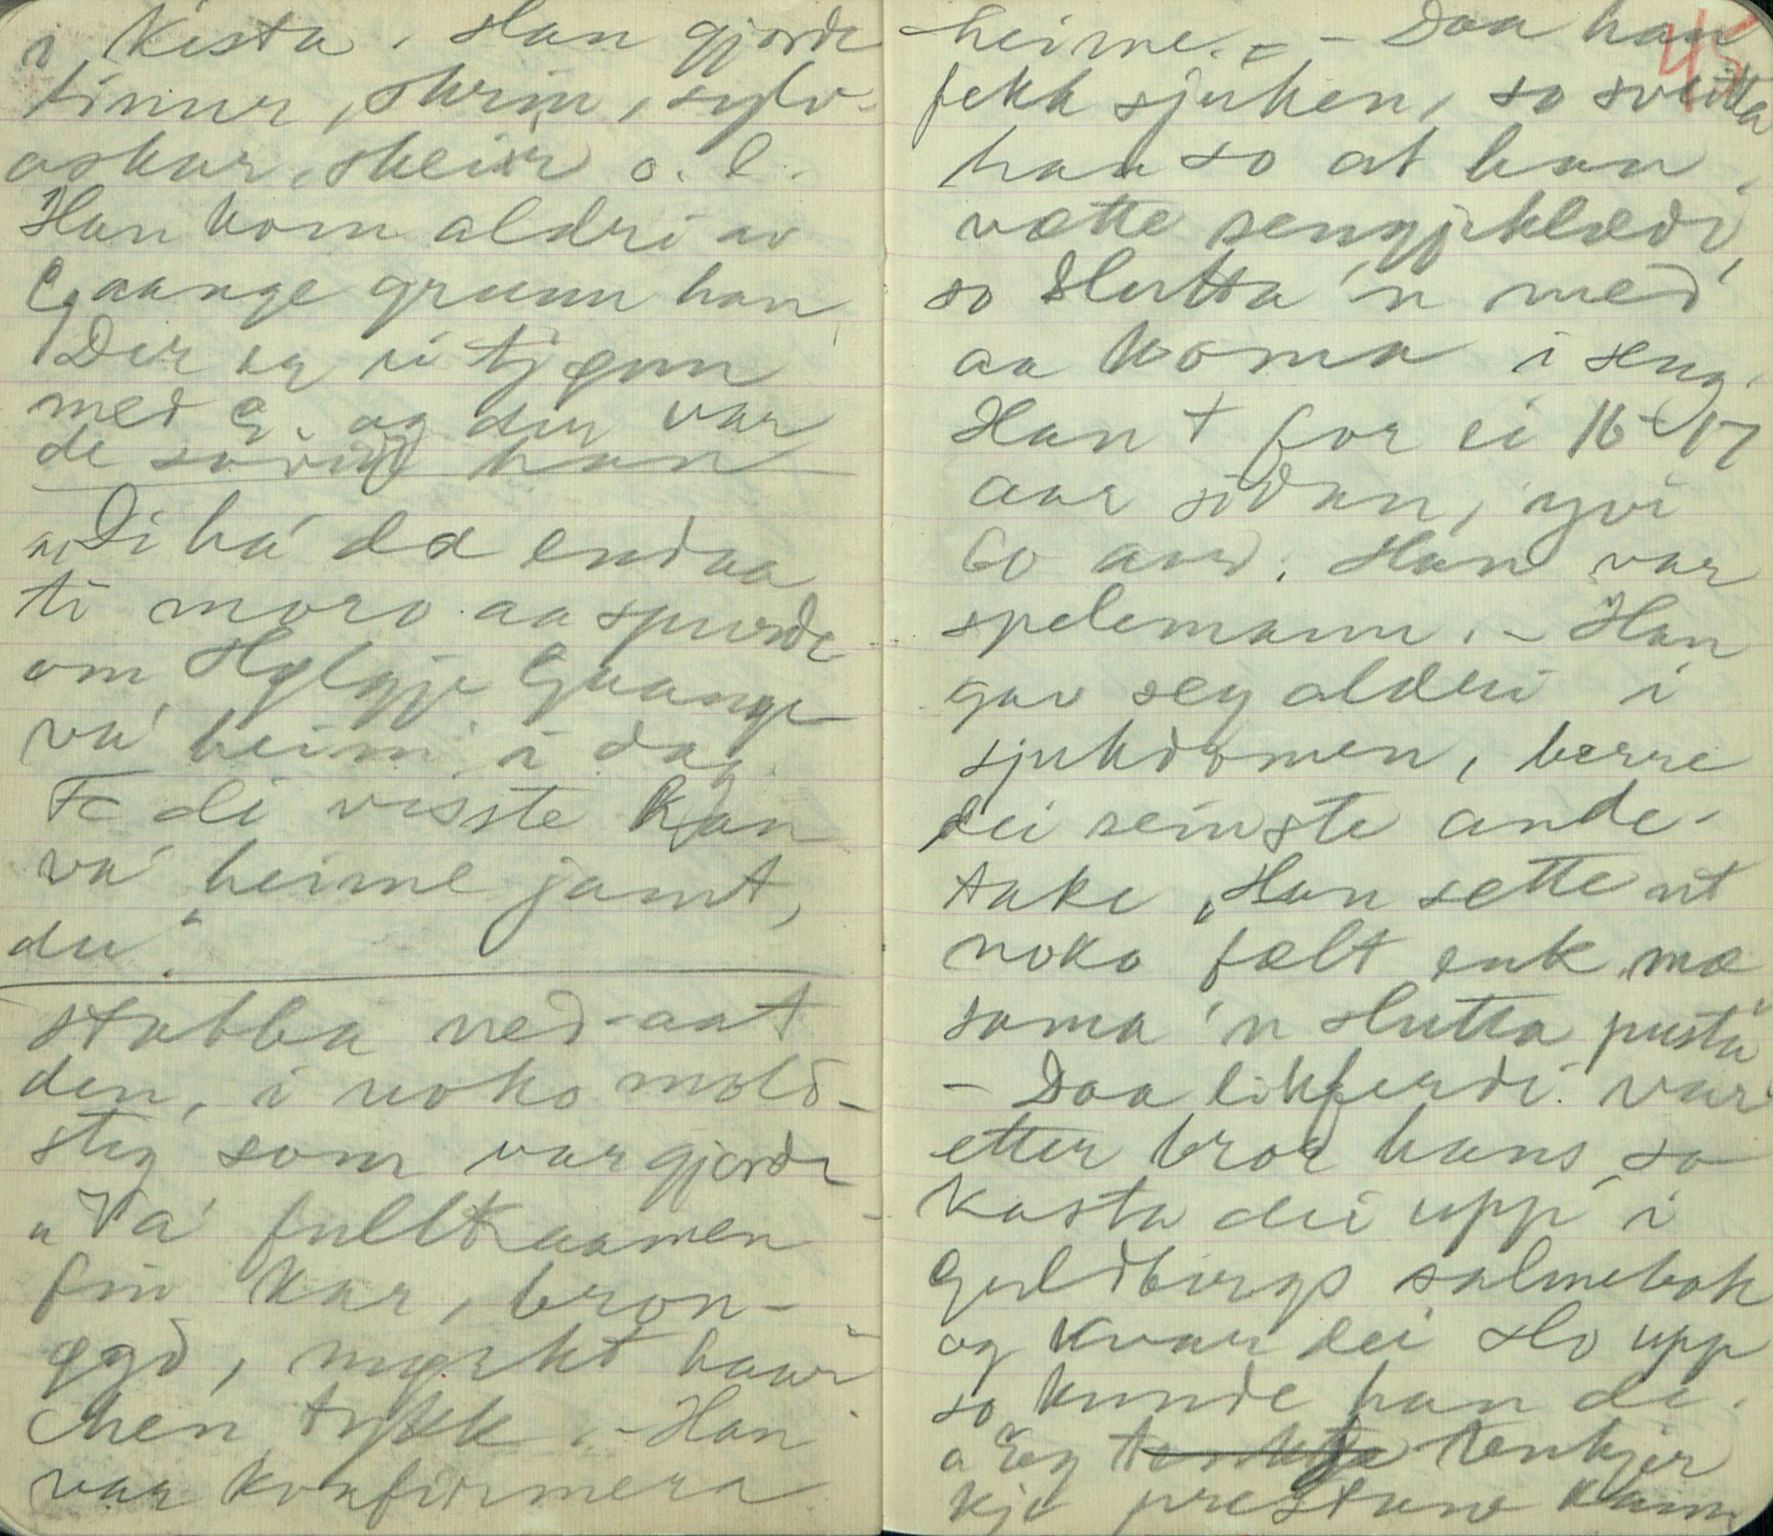 i Kista. Han gjorde
tinur, skrin, sylv-
askar, skeiir o. l.
Han kom aldri av
Gaange grunn han
Der eg i tj
med G. og der var
de han
"Di ha' dæ endaa
ti moro aa spurde
om Hølgje Gaange
va' heim i dag
Fe di visste han
va' heime jamt,
du."
stabba ned-aat
den, i noko mold-
stig som var gjorde
"Va' fullkaamen
fin kar, bron-
øgd, myrkt haar
Men tykk. - Han
var konfirmera
heime. - Daa han
45
fekk sjuken, so sveitta
han so at han
vætte sengjiklædi,
so slutta 'n med
aa koma i seng.
Han † for ei 16-17
aar sidan, yvi
60 aar. Han var
spelemann. - Han
gav seg aldri i
sjukdomen, berre
dei seinste ande-
take. "Han sette ut
noko fælt enk mæ
sama 'n slutta pusta"
- Daa likferdi var
etter bror hans so
kasta dei upp i
Guldbergs salmebok
og kvar dei slo upp
so kunde han de.
"Eg tenkjer
kje prestane kann